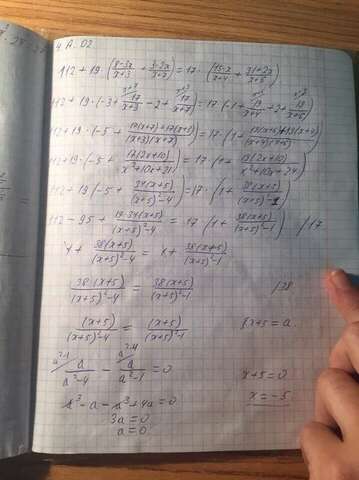 4 А. 02.
112 + 19 · (8-3x/x+3 + 3-2x/x+7) = 17 · (15-x/x+4 + 31+2x/x+6)
112 + 19 · (-3 + 17/x+3 - 2 + 17/x+7) = 17 (-1 + 19/x+4 + 2 + 19/x+6)
112 + 19 · (-5 + 17(x+7)+17(x+3)/(x+3)(x+7)) = 17 · (1 + 19(x+6)+19(x+4)/(x+4)(x+6))
112 + 19 · (-5 + 17(2x+10)/x²+10x+21) = 17 · (1 + 19(2x+10)/x²+10x+24)
112 + 19 (-5 + 34(x+5)/(x+5)²-4) = 17 · (1 + 38(x+5)/(x+5)²-1)
112 - 95 + 19·34(x+5)/(x+5)²-4 = 17 (1 + 38(x+5)/(x+5)²-1) /17
1 + 38(x+5)/(x+5)²-4 = 1 + 38(x+5)/(x+5)²-1
38(x+5)/(x+5)²-4 = 38(x+5)/(x+5)²-1 /38
(x+5)/(x+5)²-4 = (x+5)/(x+5)²-1 x+5 = a.
a²-1 a²-4
a/a²-4 - a/a²-1 = 0 x+5=0
a³ - a - a³ + 4a = 0 x = -5.
3a = 0
a = 0